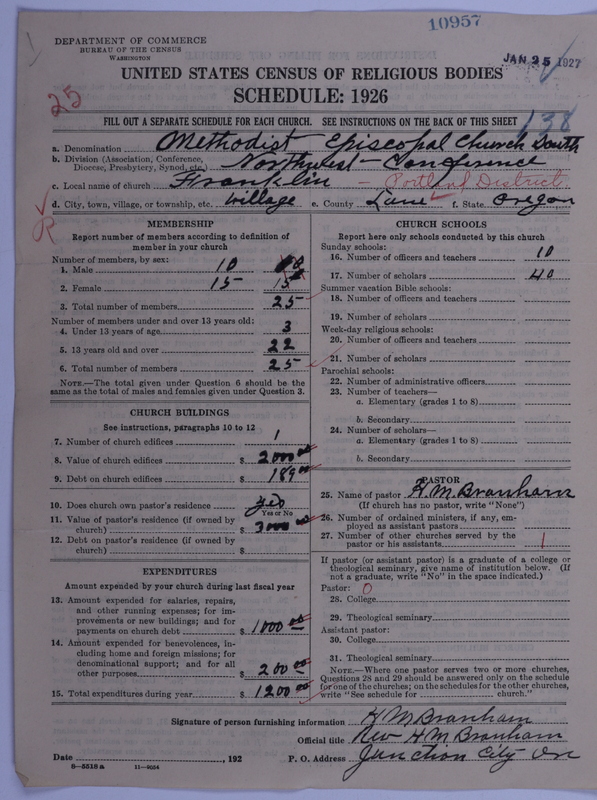 10957
DEPARTMENT OF COMMERCE
BUREAU OF THE CENSUS
WASHINGTON
JAN 25 1927
UNITED STATES CENSUS OF RELIGIOUS BODIES
SCHEDULE: 1926
25
138
FILL OUT A SEPARATE SCHEDULE FOR EACH CHURCH. SEE INSTRUCTIONS ON THE BACK OF THIS SHEET
a. Denomination Methodist Episcopal Church South
b. Division (Association, Conference, Diocese, Presbytery, Synod, etc.) Northwest - Conference
c. Local name of church Franklin - Portland District
d. City, town, village, or township, etc. village e. County Lane f. State Oregon
MEMBERSHIP
Report number of members according to definition of
member in your church
Number of members, by sex:
1. Male 10
2. Female 15 15
3. Total number of members 25
Number of members under and over 13 years old:
4. Under 13 years of age 3
5. 13 years old and over 22
6. Total number of members 25
NOTE.—The total given under Question 6 should be the
same as the total of males and females given under Question 3.
CHURCH BUILDINGS
See instructions, paragraphs 10 to 12
7. Number of church edifices 1
8. Value of church edifices $ 2000 00
9. Debt on church edifices $ 189 00
10. Does church own pastor's residence yes
Yes or No
11. Value of pastor's residence (if owned by
church) $ 3000 00
12. Debt on pastor's residence (if owned by
church) $
EXPENDITURES
Amount expended by your church during last fiscal year
13. Amount expended for salaries, repairs,
and other running expenses; for im-
provements or new buildings; and for
payments on church debt $ 1000 00
14. Amount expended for benevolences, in-
cluding home and foreign missions; for
denominational support; and for all
other purposes $ 200 00
15. Total expenditures during year $ 1200 00
CHURCH SCHOOLS
Report here only schools conducted by this church
Sunday schools:
16. Number of officers and teachers 10
17. Number of scholars 40
Summer vacation Bible schools:
18. Number of officers and teachers
19. Number of scholars
Week-day religious schools:
20. Number of officers and teachers
21. Number of scholars
Parochial schools:
22. Number of administrative officers
23. Number of teachers—
a. Elementary (grades 1 to 8)
b. Secondary
24. Number of scholars—
a. Elementary (grades 1 to 8)
b. Secondary
PASTOR
25. Name of pastor H M Branham
(If church has no pastor, write "None")
26. Number of ordained ministers, if any, em-
ployed as assistant pastors
27. Number of other churches served by the
pastor or his assistants 1
If pastor (or assistant pastor) is a graduate of a college or
theological seminary, give name of institution below. (If
not a graduate, write "No" in the space indicated.)
Pastor: 0
28. College
29. Theological seminary
Assistant pastor:
30. College
31. Theological seminary
NOTE.—Where one pastor serves two or more churches,
Questions 28 and 29 should be answered only on the schedule
for one of the churches; on the schedules for the other churches,
write "See schedule for church."
Signature of person furnishing information H M Branham
Official title Rev H M Branham
Date , 192 P. O. Address Junction City Ore
8—5518 a 11—9034